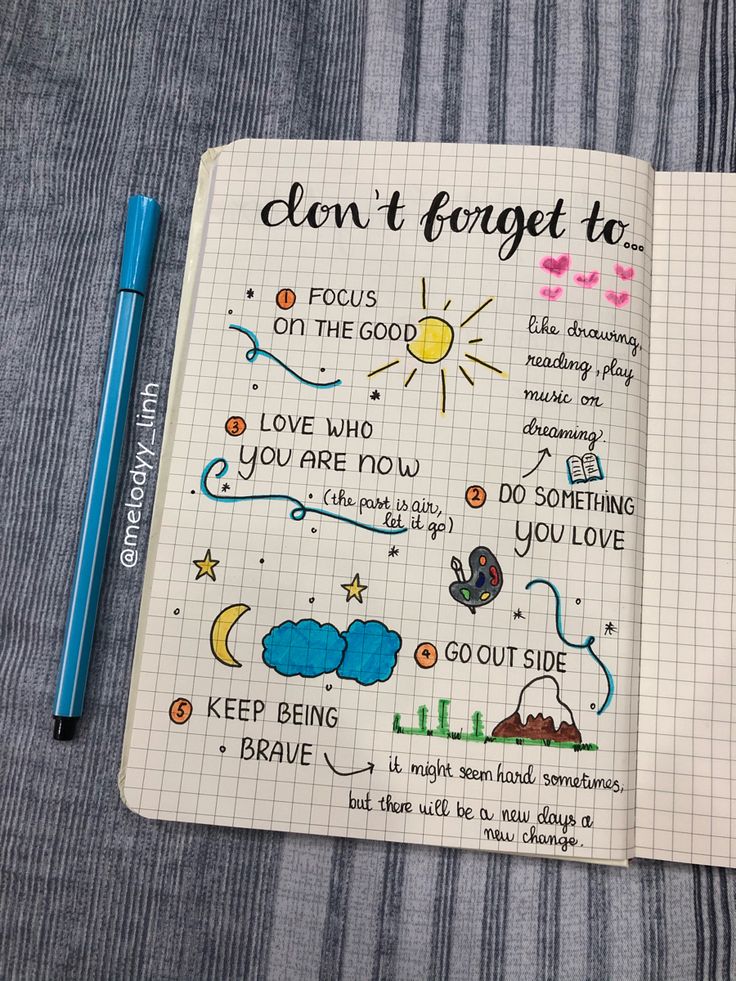 don't forget to...
① FOCUS
ON THE GOOD
like drawing,
reading, play
music or
dreaming.
② DO SOMETHING
YOU LOVE
③ LOVE WHO
YOU ARE NOW
(the past is air,
let it go)
④ GO OUT SIDE
⑤ KEEP BEING
BRAVE
it might seem hard sometimes,
but there will be a new days a
new change.
@melodyy_linh